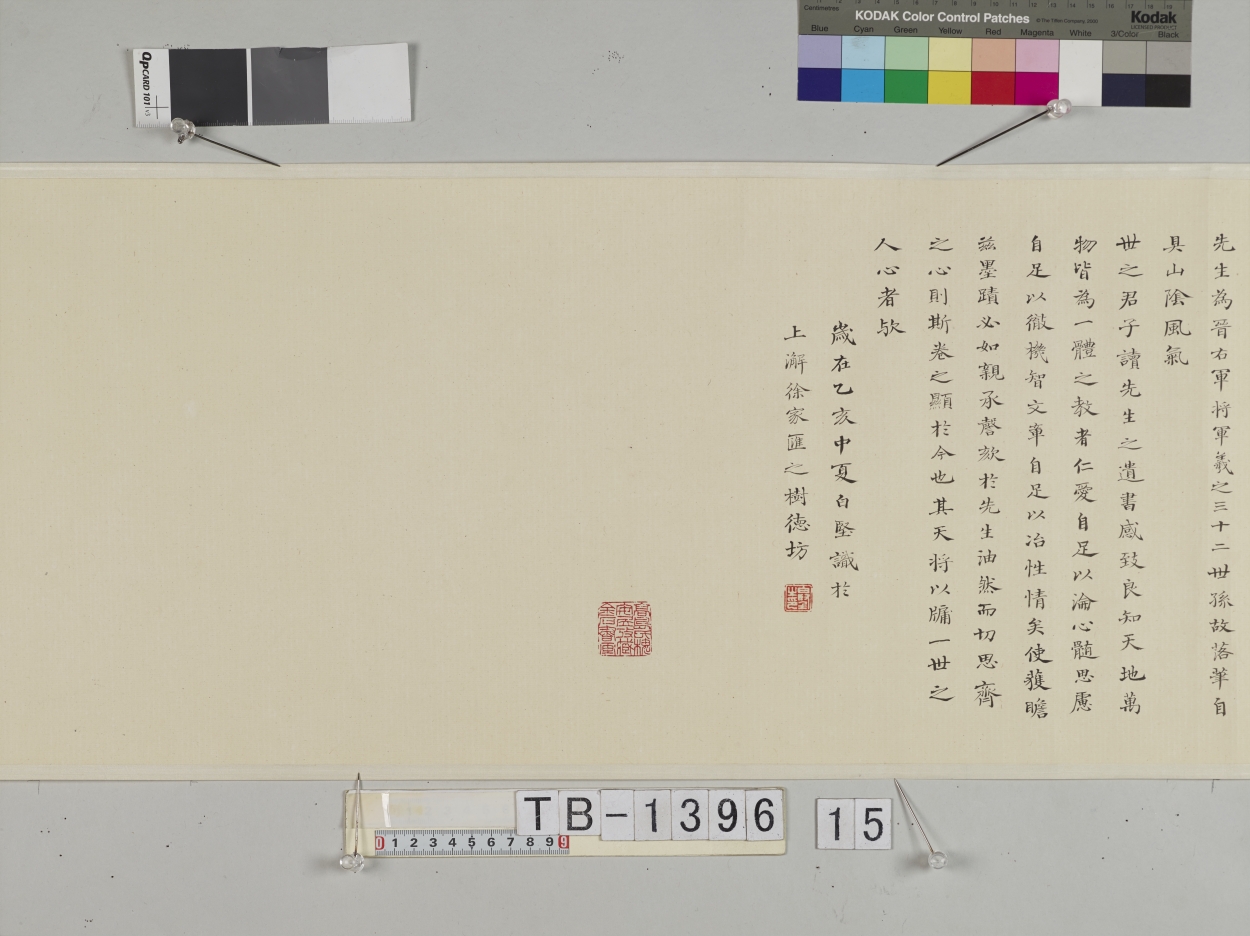 先生為晉右軍将軍羲之三十二世孫故落筆自
具山陰風氣
世之君子讀先生之遺書感致良知天地萬
物皆為一體之教者仁愛自足以淪心髓思慮
自足以徹機智文章自足以冶性情矣使獲瞻
茲墨蹟必如親承謦欬於先生油然而切思齊
之心則斯卷之顯於今也其天将以牖一世之
人心者歟
歲在乙亥中夏白堅識於
上澥徐家匯之樹德坊
QPCARD 101 v3
Centimetres
KODAK Color Control Patches
© The Tiffen Company, 2000
Kodak
LICENSED PRODUCT
Blue Cyan Green Yellow Red Magenta White 3/Color Black
TB-1396 15
0 1 2 3 4 5 6 7 8 9 9